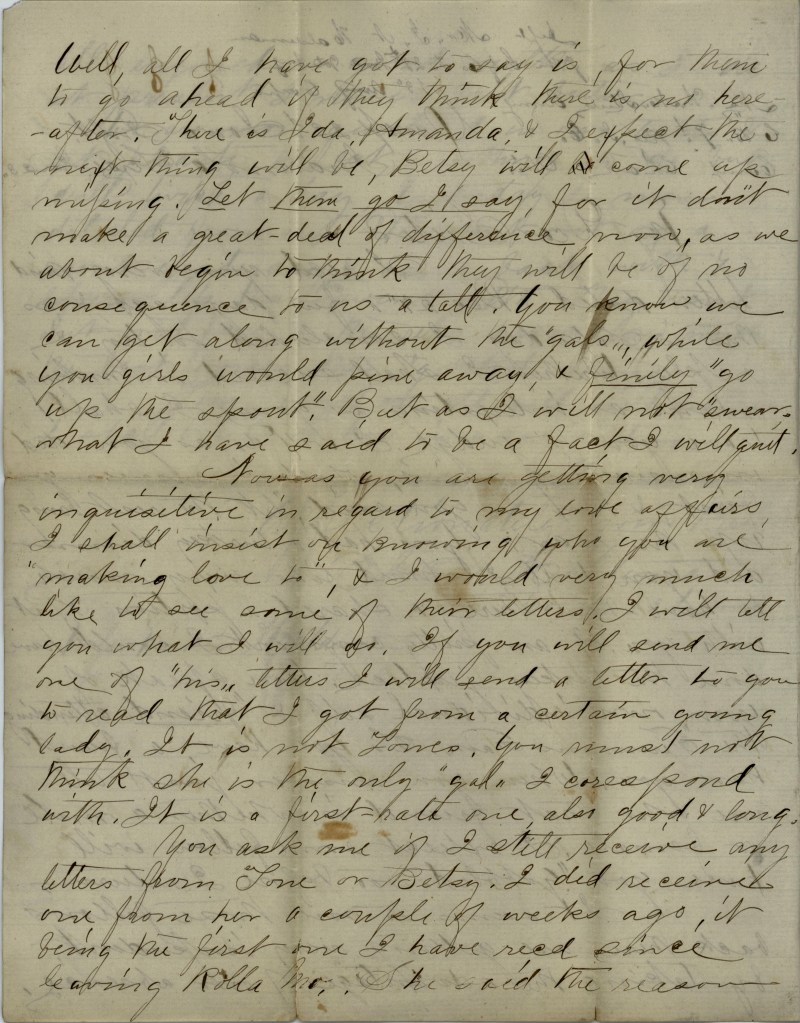 Well, all I have got to say is, for them
to go ahead if they think there is no here-
-after. There is Ida, Amanda, & I expect the
next thing will be, Betsy will come up
missing. Let them go I say, for it don't
make a great-deal of difference now, as we
about begin to think they will be of no
consequence to us a tall. You know we
can get along without the "gals", while
you girls would pine away, & finily "go
up the spout". But as I will not "swear"
what I have said to be a fact I will quit.
Now as you are getting very
inquisitive in regard to my love affairs,
I shall insist on knowing who you are
"making love to", & I would very much
like to see some of their letters. I will tell
you what I will do. If you will send me
one of "his" letters I will send a letter to you
to read that I got from a certain young
lady. It is not Tones. You must not
think she is the only "gal" I corespond
with. It is a first-rate one, also good & long.
You ask me if I still receive any
letters from Tone or Betsy. I did receive
one from her a couple of weeks ago, it
being the first one I have recd since
leaving Rolla Mo,. She said the reason